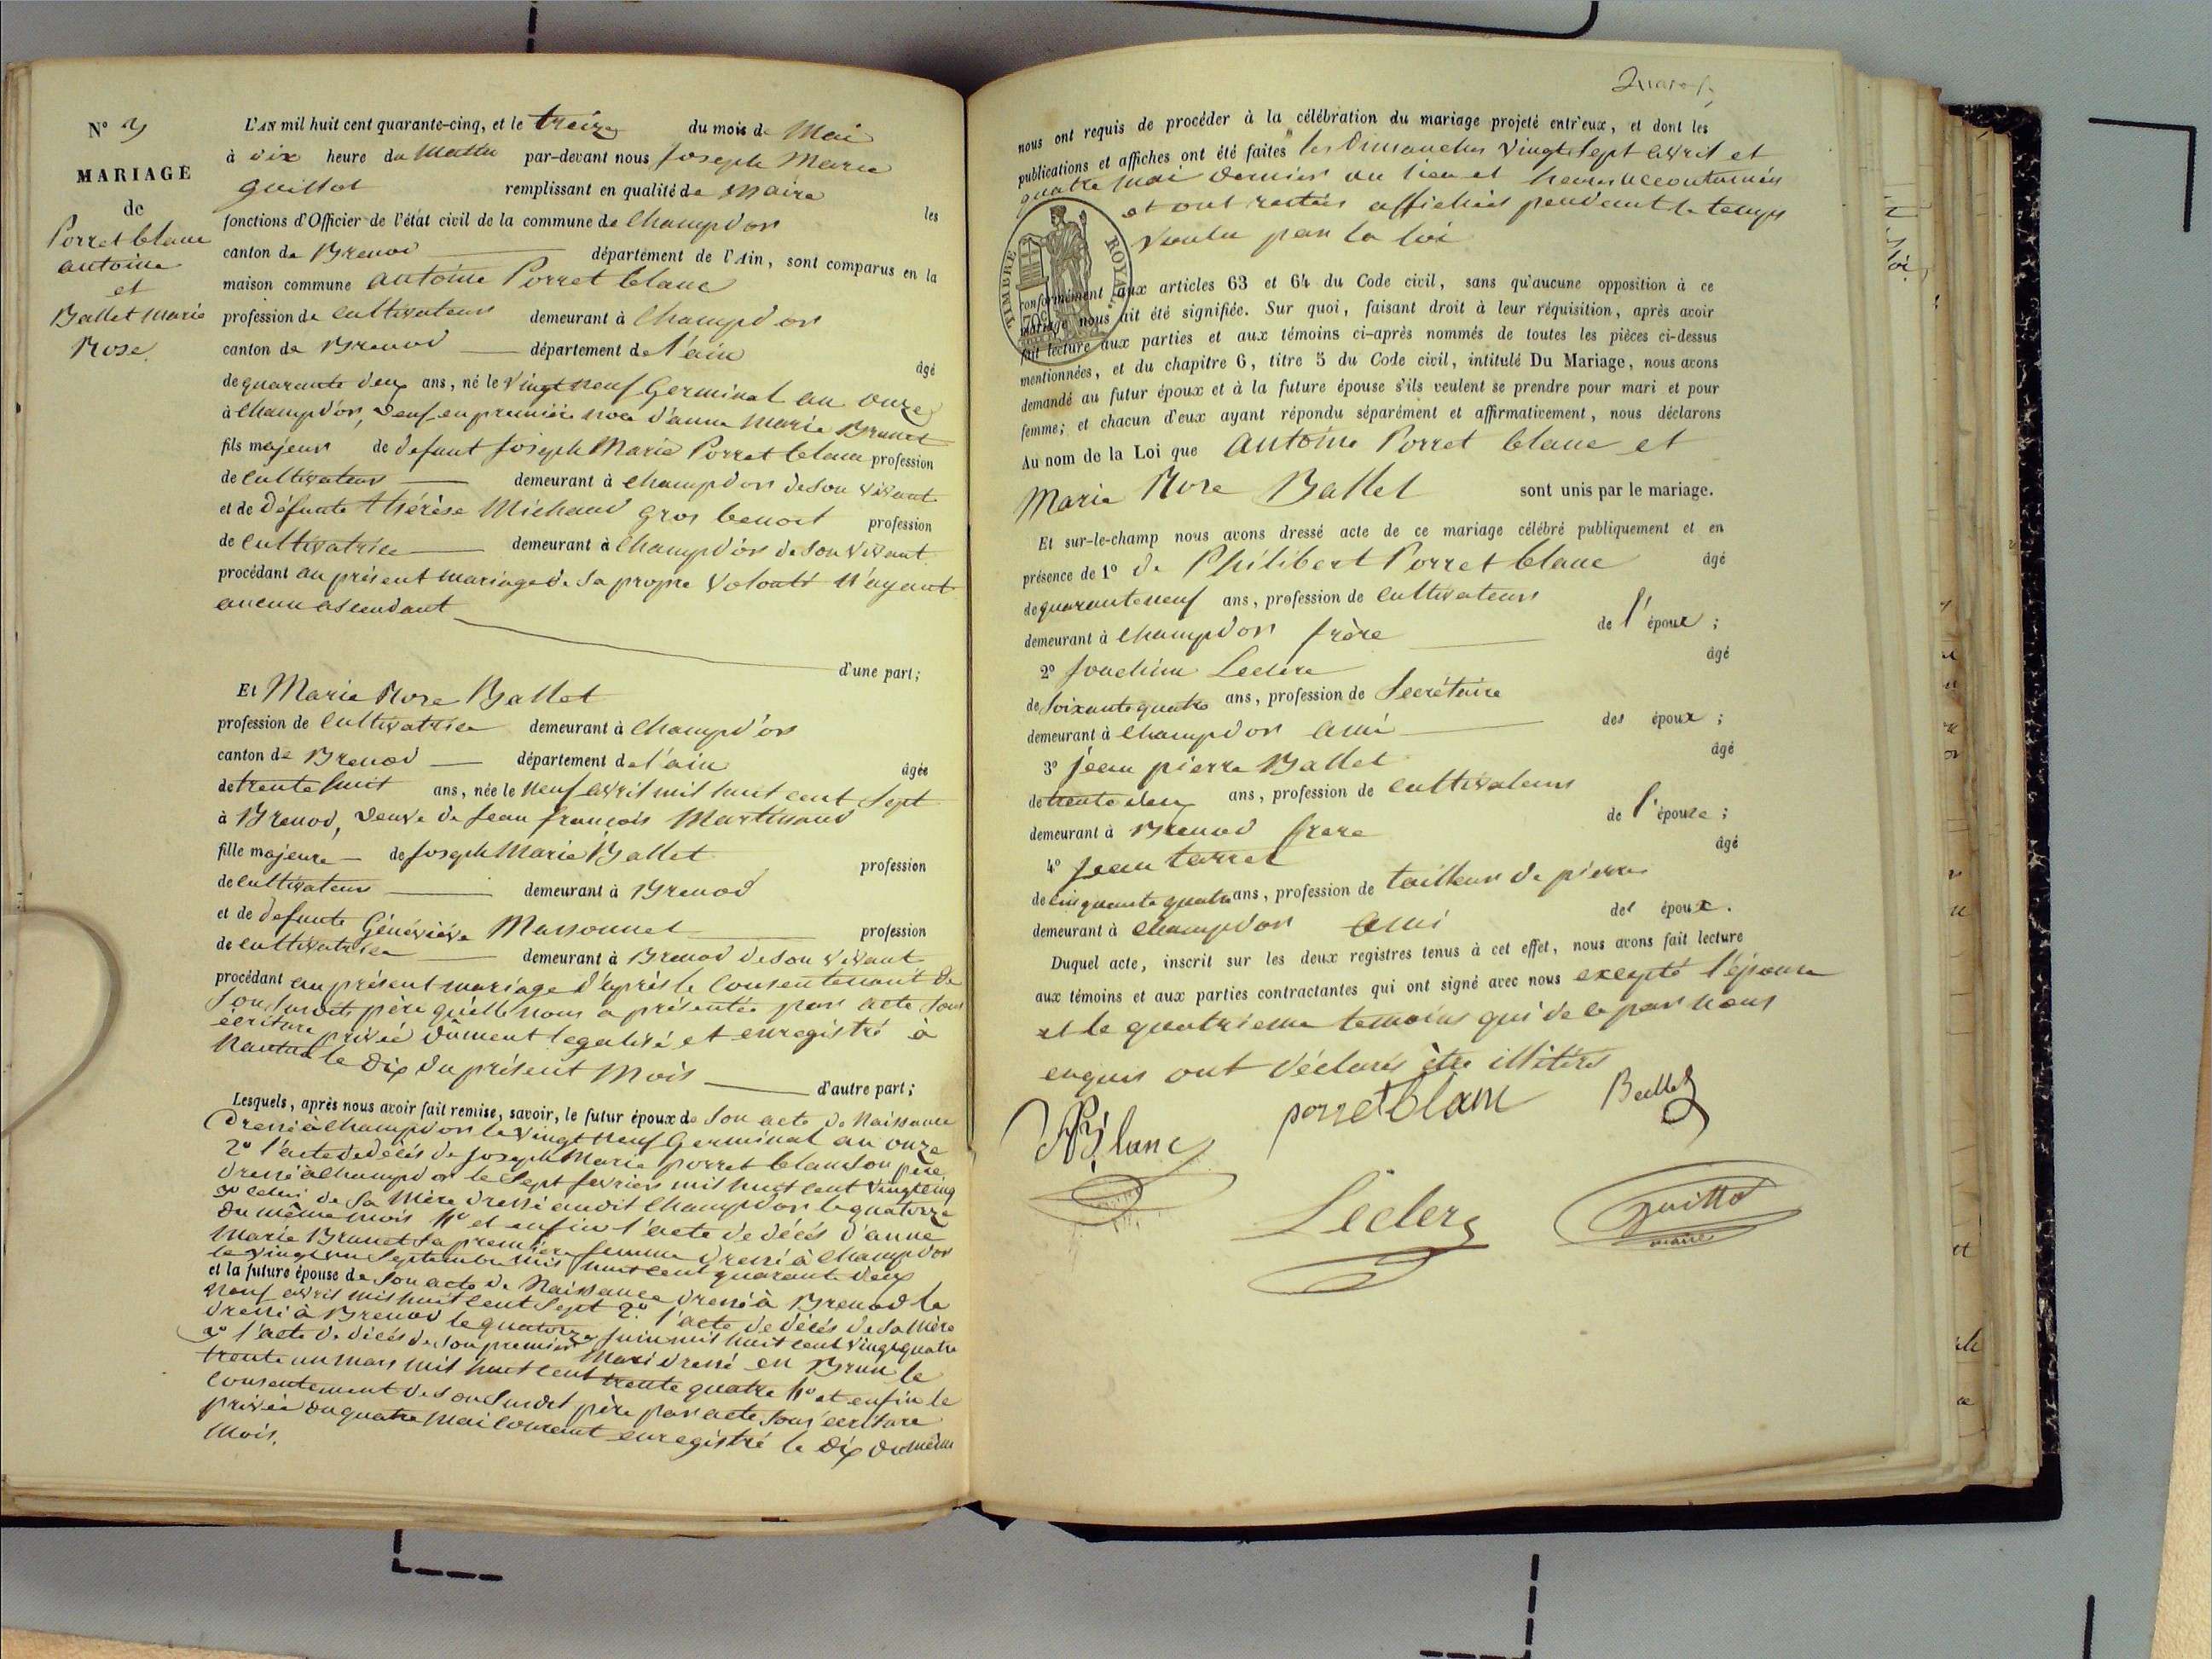 N° 3
MARIAGE
de
Porret blanc
antoine
et
Ballet Marie
Rose.
L'AN mil huit cent quarante-cinq, et le treize du mois de Mai
à dix heure du Matin par-devant nous Joseph Marie
Guillot remplissant en qualité de Maire les
fonctions d'Officier de l'état civil de la commune de Champdor
canton de Brenod département de l'Ain, sont comparus en la
maison commune antoine Porret blanc
profession de Cultivateur demeurant à Champdor
canton de Brenod département de l'ain âgé
de quarante deux ans, né le vingt neuf Germinal an onze
à Champd'or, veuf en première noce d'anne Marie Brunet
fils majeur de defunt Joseph Marie Porret blanc profession
de Cultivateur demeurant à Champdor de son vivant
et de défunte thérèse Michaud gros benoit profession
de Cultivatrice demeurant à Champd'or de son vivant
procédant au présent mariage de sa propre volonté n'ayant
aucun ascendant
d'une part;
Et Marie Rose Ballet
profession de Cultivatrice demeurant à Champd'or
canton de Brenod département de l'ain âgée
de trente huit ans, née le neuf avril mil huit cent sept
à Brenod, veuve de Jean françois Martinand
fille majeure de Joseph Marie Ballet profession
de cultivateur demeurant à Brenod
et de defunte Généviève Massonnet profession
de cultivatrice demeurant à Brenod de son vivant
procédant au présent mariage d'après le Consentement de
Son susdit père qu'elle nous a présentée par acte sous
écriture privée dûment legalisé et enregistré à
Nantua le dix du présent Mois d'autre part;
Lesquels, après nous avoir fait remise, savoir, le futur époux de Son acte de Naissance
Dressé à Champdor le vingt neuf Germinal an onze
2° l'acte de décés de Joseph Marie porret blanc son père
dressé à Champdor le Sept fevrier mil huit cent vingt cinq
3° celui de Sa Mère dressé audit Champdor le quatorze
du même mois 4° et enfin l'acte de décés d'anne
Marie Brunet Sa première femme dressé à Champdor
le vingt un Septembre mil huit cent quarante deux
et la future épouse de Son acte de Naissance dressé à Brenod le
neuf avril mil huit cent Sept 2° l'acte de décés de Sa Mère
dressé à Brenod le quatorze Juin mil huit cent vingt quatre
3° l'acte de décés de Son premier Mari dressé en Bron le
trente un mars mil huit cent trente quatre 4° et enfin le
Consentement de Son Susdit père par acte sous écriture
privée du quatre Mai Courant enregistré le dix du même
Mois.
nous ont requis de procéder à la célébration du mariage projeté entr'eux, et dont les
publications et affiches ont été faites les Dimanches Vingt Sept avril et
quatre Mai dernier au lieu et heures accoutumées
et ont restées affichées pendant le temps
voulu par la loi
TIMBRE ROYAL
conformément aux articles 63 et 64 du Code civil, sans qu'aucune opposition à ce
mariage nous ait été signifiée. Sur quoi, faisant droit à leur réquisition, après avoir
fait lecture aux parties et aux témoins ci-après nommés de toutes les pièces ci-dessus
mentionnées, et du chapitre 6, titre 5 du Code civil, intitulé Du Mariage, nous avons
demandé au futur époux et à la future épouse s'ils veulent se prendre pour mari et pour
femme; et chacun d'eux ayant répondu séparément et affirmativement, nous déclarons
Au nom de la Loi que antoine Porret blanc et
Marie Rose Ballet sont unis par le mariage.
Et sur-le-champ nous avons dressé acte de ce mariage célébré publiquement et en
présence de 1° de Philibert Porret blanc âgé
de quarante neuf ans, profession de Cultivateur
demeurant à Champdor frère de l'époux;
2° Joachim Leclerc âgé
de Soixante quatre ans, profession de Secrétaire
demeurant à Champdor ami des époux;
3° Jean pierre Ballet âgé
de trente deux ans, profession de Cultivateur
demeurant à Brenod frère de l'épouse;
4° Jean tarret âgé
de cinquante quatre ans, profession de tailleur de pierre
demeurant à Champdor ami des époux.
Duquel acte, inscrit sur les deux registres tenus à cet effet, nous avons fait lecture
aux témoins et aux parties contractantes qui ont signé avec nous excepté l'épouse
et le quatrieme temoins qui de ce par nous
enquis ont déclarés être illitérés
Blanc porretblanc Ballet
Leclerc Guillot
maire